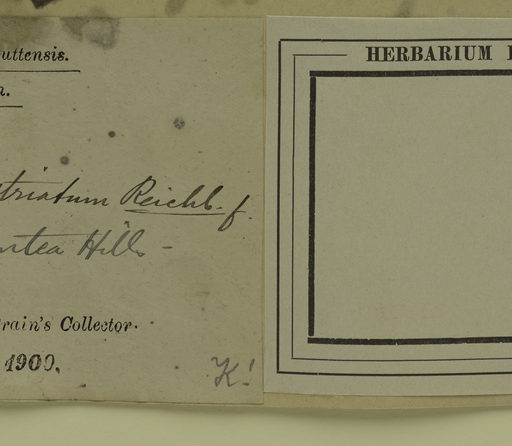 uttensis.
n.
triatum Reichb. f.
Hills -
rain's Collector.
1900.
K!
HERBARIUM